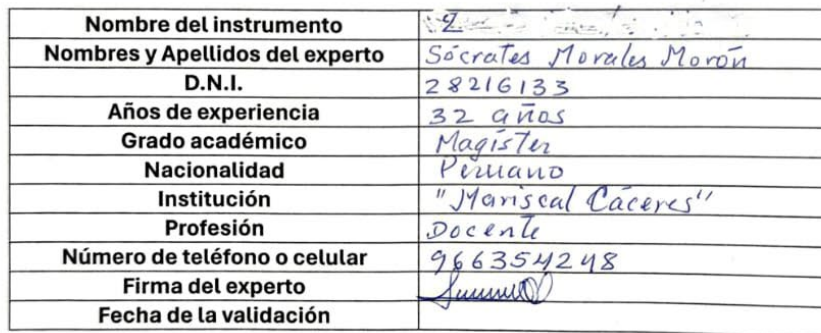 Nombre del instrumento 2
Nombres y Apellidos del experto Sócrates Morales Morón
D.N.I. 28216133
Años de experiencia 32 años
Grado académico Magíster
Nacionalidad Peruano
Institución "Mariscal Cáceres"
Profesión Docente
Número de teléfono o celular 966354248
Firma del experto
Fecha de la validación